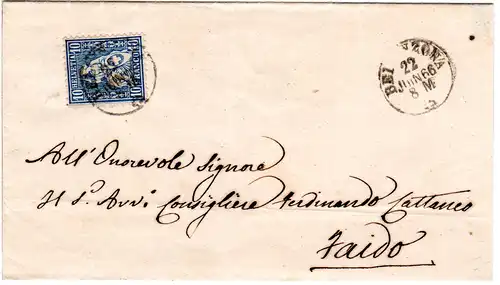 BELLINZONA
22
JUIN 66
8 M
10 10
FRANCO
All' Onorevole Signore
Il Sr. Avv. Consigliere Ferdinando Cattaneo
Faido